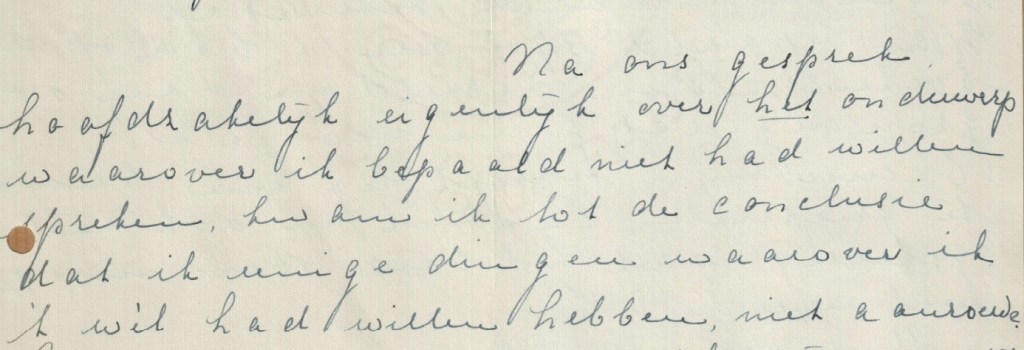 Na ons gesprek,
hoofdzakelijk eigenlijk over het onderwerp
waarover ik bepaald niet had willen
spreken, kwam ik tot de conclusie
dat ik eenige dingen waarover ik
't wèl had willen hebben, niet aanroerde